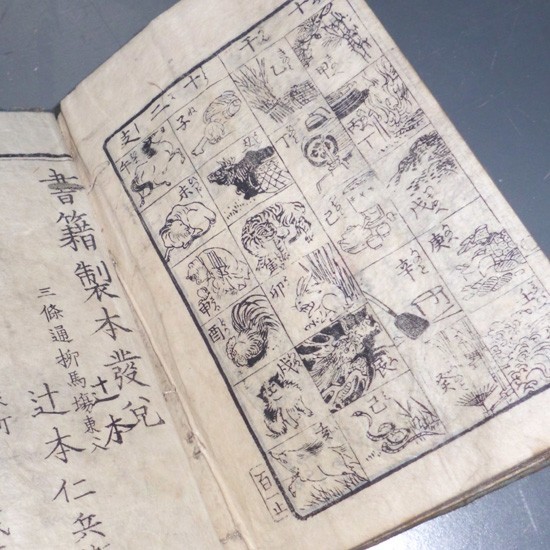 十干
甲
乙
丁
戊
己
庚
辛
壬
癸
十二支
子
丑
寅
卯
辰
巳
午
未
申
酉
戌
亥
百止
書籍製本發兌
辻本
三條通柳馬塲東入
辻本仁兵
町